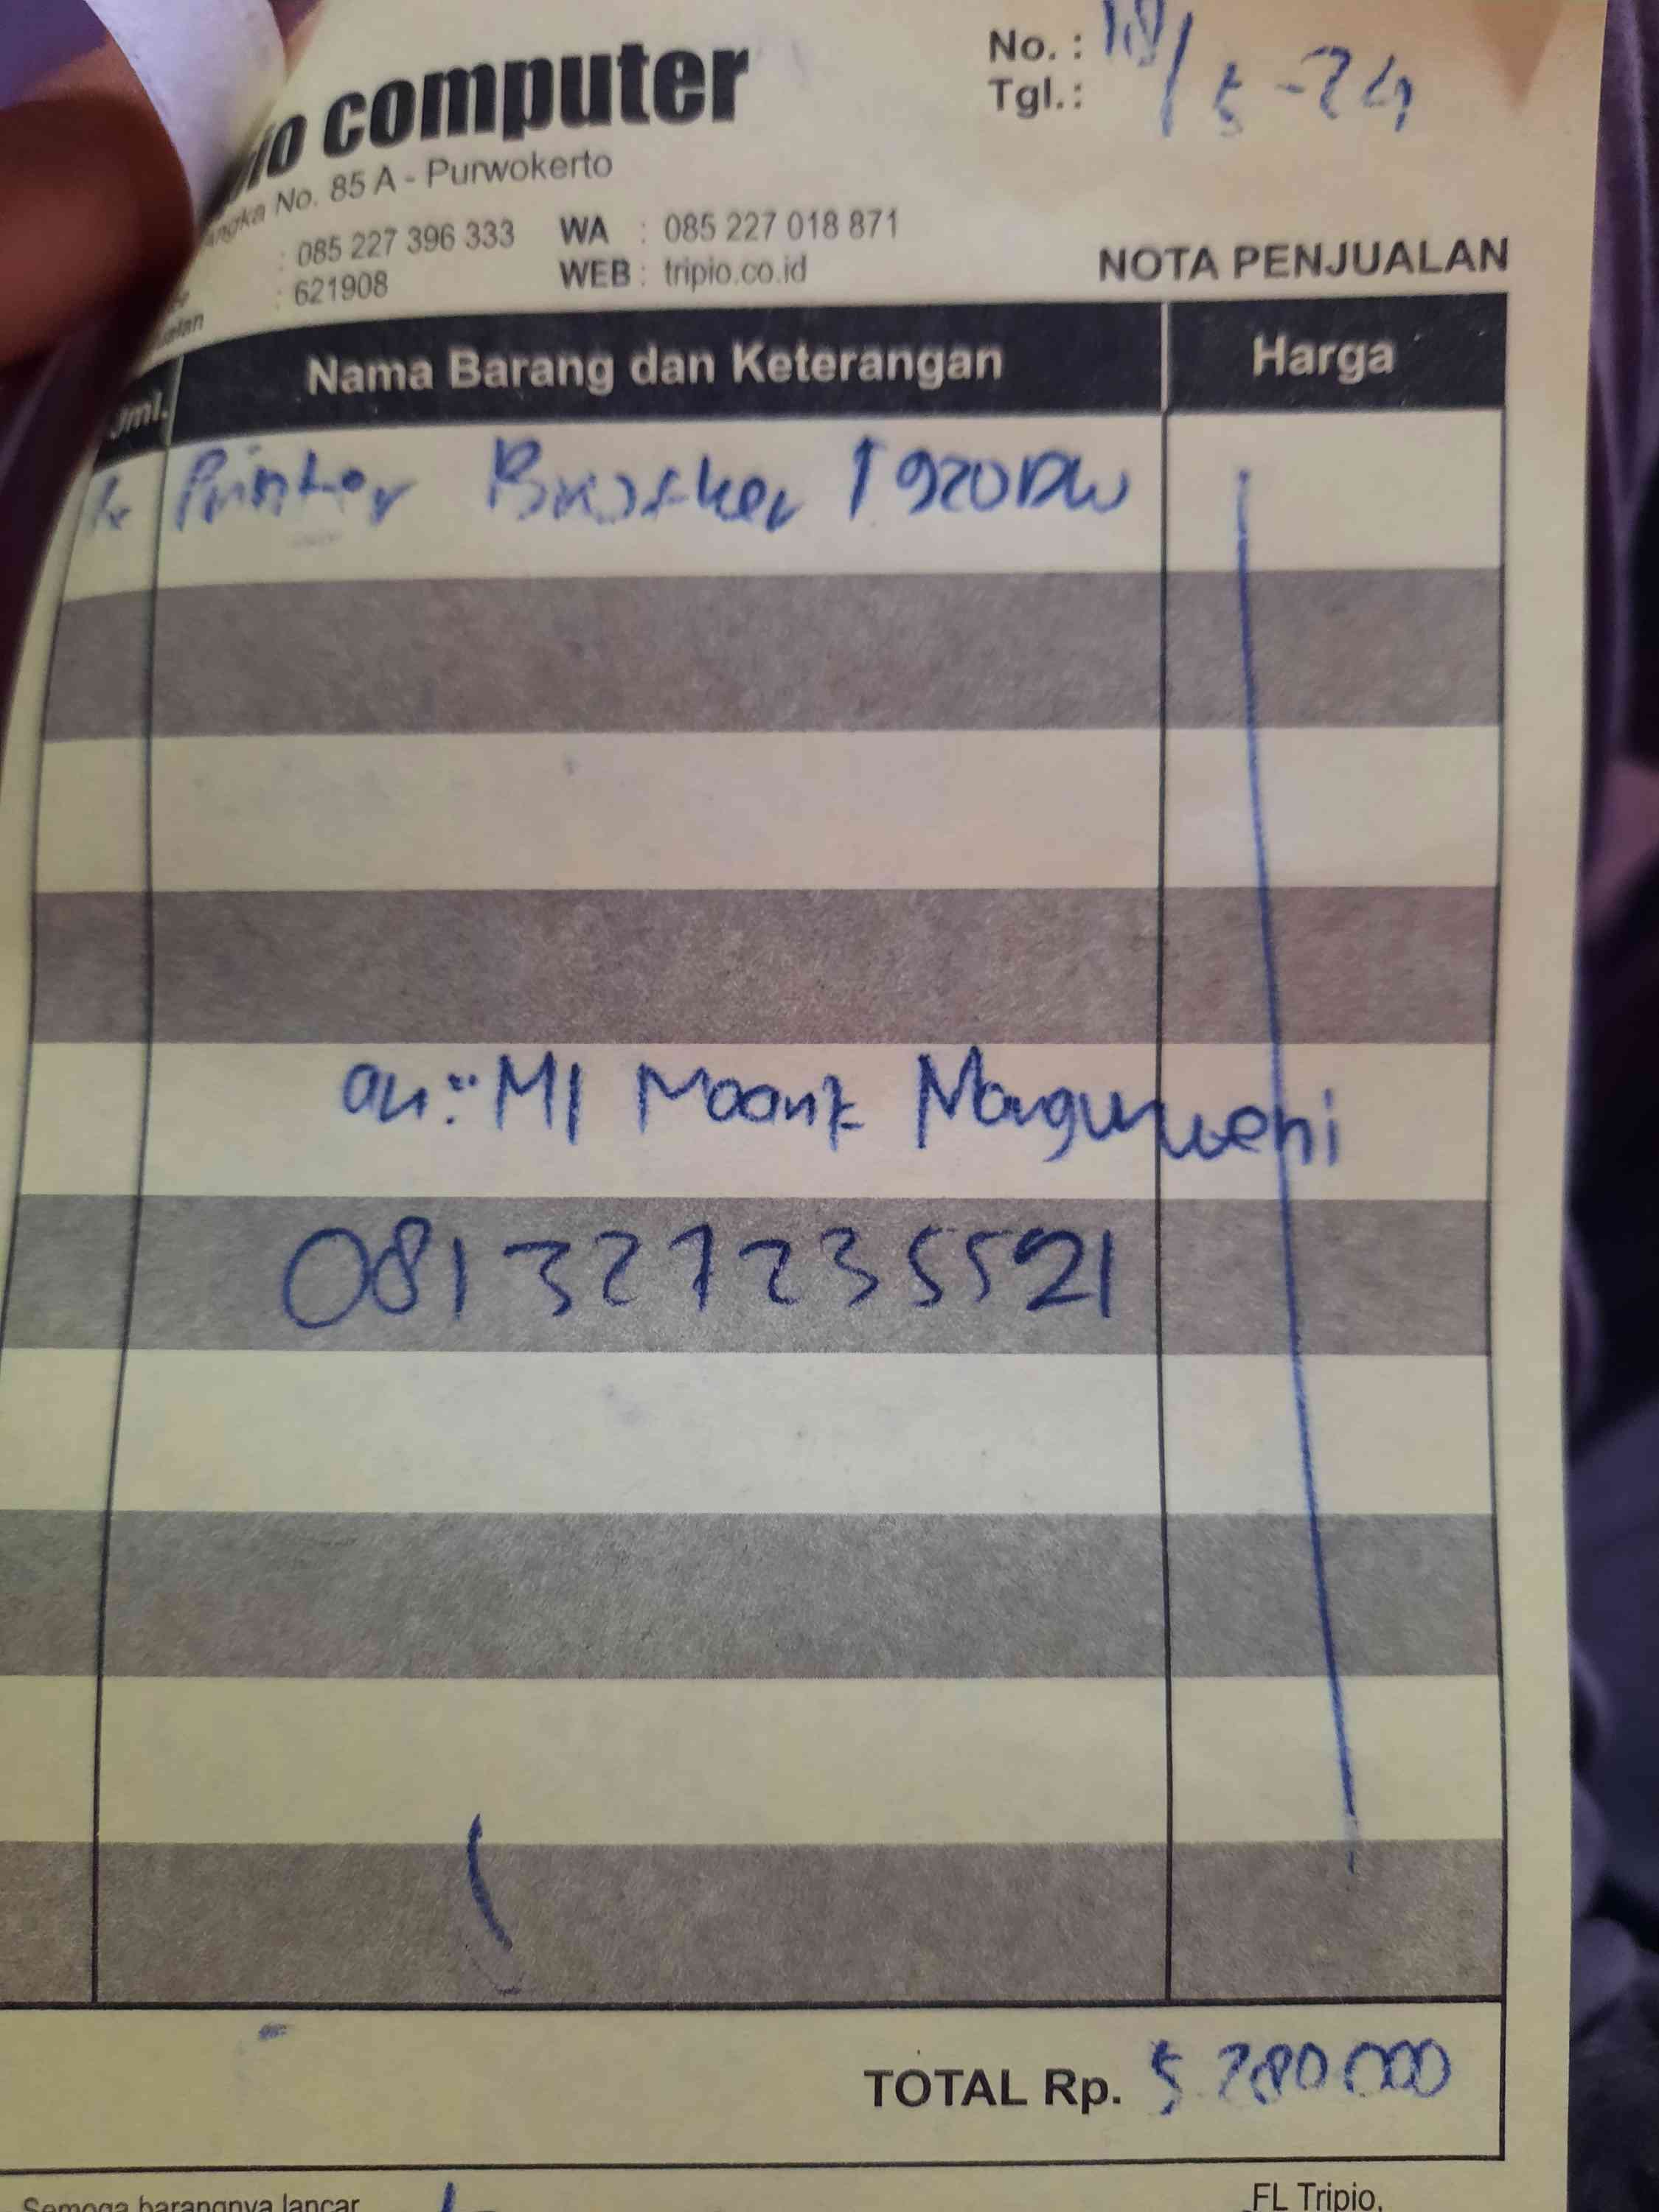 computer
No. :
Tgl. : 18/5-24
No. 85 A - Purwokerto
: 085 227 396 333 WA : 085 227 018 871
: 621908 WEB : tripio.co.id
NOTA PENJUALAN
Jml. Nama Barang dan Keterangan Harga
Printer Brother T920DW
an: MI Maarif Manguweni
081327235521
TOTAL Rp. 5.280 000
Semoga barangnya lancar
FL Tripio,